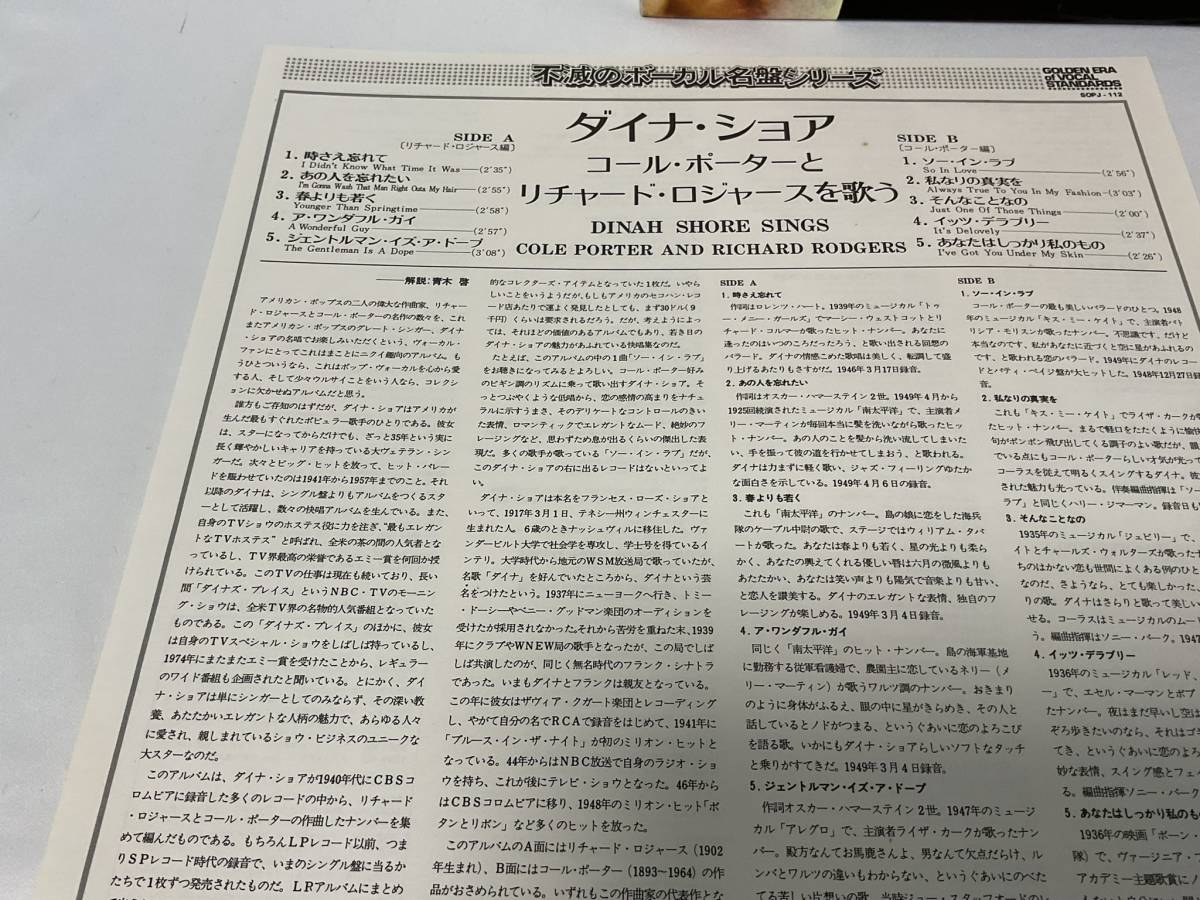 不滅のボーカル名盤シリーズ
GOLDEN ERA
of VOCAL
STANDARDS
SOPJ-112
SIDE A
〔リチャード・ロジャース編〕
1. 時さえ忘れて
I Didn't Know What Time It Was—(2'35")
2. あの人を忘れたい
I'm Gonna Wash That Man Right Outa My Hair—(2'55")
3. 春よりも若く
Younger Than Springtime—(2'58")
4. ア・ワンダフル・ガイ
A Wonderful Guy—(2'57")
5. ジェントルマン・イズ・ア・ドープ
The Gentleman Is A Dope—(3'08")
ダイナ・ショア
コール・ポーターと
リチャード・ロジャースを歌う
DINAH SHORE SINGS
COLE PORTER AND RICHARD RODGERS
SIDE B
〔コール・ポーター編〕
1. ソー・イン・ラブ
So In Love—(2'56")
2. 私なりの真実を
Always True To You In My Fashion—(3'03")
3. そんなことなの
Just One Of Those Things—(2'00")
4. イッツ・デラブリー
It's Delovely—(2'37")
5. あなたはしっかり私のもの
I've Got You Under My Skin—(2'26")
——解説:青木 啓
アメリカン・ポップスの二人の偉大な作曲家、リチャー
ド・ロジャースとコール・ポーターの名作の数々を、これ
またアメリカン・ポップスのグレート・シンガー、ダイナ
・ショアの名唱でお楽しみいただくという、ヴォーカル・
ファンにとってこれはまことにニクイ趣向のアルバム。も
うひとつ​いうなら、これはポップ・ヴォーカルを心から愛
する人、そして少々ウルサイことをいう人なら、コレクシ
ョンに欠かせぬアルバムだと思う。
誰方もご存知のはずだが、ダイナ・ショアはアメリカが
生んだ最もすぐれたポピュラー歌手のひとりである。彼女
は、スターになってからだけでも、ざっと35年という実に
長く輝やかしいキャリアを持っている大ヴェテラン・シン
ガーだ。次々とビッグ・ヒットを放って、ヒット・パレー
ドを賑わせていたのは1941年から1957年までのこと。それ
以降のダイナは、シングル盤よりもアルバムをつくるスタ
ーとして活躍し、数々の快唱アルバムを生んでいる。また、
自身のTVショウのホステス役に力を注ぎ、"最もエレガン
トなTVホステス"と呼ばれ、全米の茶の間の人気者とな
っているし、TV界最高の栄誉であるエミー賞を何回か授
けられている。このTVの仕事は現在も続いており、長い
間「ダイナズ・プレイス」というNBC・TVのモーニン
グ・ショウは、全米TV界の名物的人気番組となっていた
ものである。この「ダイナズ・プレイス」のほかに、彼女
は自身のTVスペシャル・ショウをしばしば持っているし、
1974年にまたまたエミー賞を受けたことから、レギュラー
のワイド番組も企画されたと聞いている。とにかく、ダイ
ナ・ショアは単にシンガーとしてのみならず、その深い教
養、あたたかいエレガントな人柄の魅力で、あらゆる人々
に愛され、親しまれているショウ・ビジネスのユニークな
大スターなのだ。
このアルバムは、ダイナ・ショアが1940年代にCBSコ
ロムビアに録音した多くのレコードの中から、リチャード
・ロジャースとコール・ポーターの作曲したナンバーを集
めて編んだものである。もちろんLPレコード以前、つま
りSPレコード時代の録音で、いまのシングル盤に当るか
たちで1枚ずつ発売されたものだ。LRアルバムにまとめ
的なコレクターズ・アイテムとなっていた1枚だ。いやら
しいことをいうようだが、もしもアメリカのセコハン・レコ
ード店あたりで運よく発見したとしても、まず30ドル(9
千円)くらいは要求されるだろう。だが、考えようによっ
ては、それほどの価値のあるアルバムでもあり、若き日の
ダイナ・ショアの魅力があふれている快唱集なのだ。
たとえば、このアルバムの中の1曲「ソー・イン・ラブ」
をお聴きになってみるとよろしい。コール・ポーター好み
のビギン調のリズムに乗って歌い出すダイナ・ショア。そ
っとつぶやくような低唱から、恋の感情の高まりをナチュ
ラルに示すうまさ、そのデリケートなコントロールのきい
た表情、ロマンティックでエレガントなムード、絶妙のフ
レージングなど、思わずため息が出るくらいの傑出した表
現だ。多くの歌手が歌っている「ソー・イン・ラブ」だが、
このダイナ・ショアの右に出るレコードはないといってよ
い。
ダイナ・ショアは本名をフランセス・ローズ・ショアと
いって、1917年3月1日、テネシー州ウィンチェスターに
生まれた人。6歳のときナッシュヴィルに移住した。ヴァ
ンダービルト大学で社会学を専攻し、学士号を得ているイ
ンテリ。大学時代から地元のWSM放送局で歌っていたが、
名歌「ダイナ」を好んでいたところから、ダイナという芸
名をつけたという。1937年にニューヨークへ行き、トミー
・ドーシーやベニー・グッドマン楽団のオーディションを
受けたが採用されなかった。それから苦労を重ねた末、1939
年にクラブやWNEW局の歌手となったが、この局でしば
しば共演したのが、同じく無名時代のフランク・シナトラ
であった。いまもダイナとフランクは親友となっている。
この年に彼女はザヴィア・クガート楽団とレコーディング
し、やがて自分の名でRCAで録音をはじめて、1941年に
「ブルース・イン・ザ・ナイト」が初のミリオン・ヒットと
なっている。44年からはNBC放送で自身のラジオ・ショ
ウを持ち、これが後にテレビ・ショウとなった。46年から
はCBSコロムビアに移り、1948年のミリオン・ヒット「ボ
タンとリボン」など多くのヒットを放った。
このアルバムのA面にはリチャード・ロジャース(1902
年生まれ)、B面にはコール・ポーター(1893〜1964)の作
品がおさめられている。いずれもこの作曲家の代表作とな
SIDE A
1. 時さえ忘れて
作詞はロレンツ・ハート。1939年のミュージカル「トゥ
ー・メニー・ガールズ」でマーシー・ウェストコットとリ
チャード・コルマーが歌ったヒット・ナンバー。あなたに
逢ったのはいつのころだったろう、と歌い出される回想の
バラード。ダイナの情感こめた歌唱は美しく、転調して盛
り上げるあたりもさすがだ。1946年3月17日録音。
2. あの人を忘れたい
作詞はオスカー・ハマースティン2世。1949年4月から
1925回続演されたミュージカル「南太平洋」で、主演者メ
リー・マーティンが毎回本当に髪を洗いながら歌ったヒッ
ト・ナンバー。あの人のことを髪から洗い流してしまいた
い、手を振って彼の道を行かせてしまおう、と歌われる。
ダイナは力まずに軽く歌い、ジャズ・フィーリングゆたか
な面白さを示している。1949年4月6日の録音。
3. 春よりも若く
これも「南太平洋」のナンバー。島の娘に恋をした海兵
隊のケーブル中尉の歌で、ステージではウィリアム・タバ
ートが歌った。あなたは春よりも若く、星の光よりも柔ら
かく、あなたの興えてくれる優しい唇は六月の微風よりも
あたたかい、あなたは笑い声よりも陽気で音楽よりも甘い、
と恋人を讃美する。ダイナのエレガントな表情、独自のフ
レージングが楽しめる。1949年3月4日録音。
4. ア・ワンダフル・ガイ
同じく「南太平洋」のヒット・ナンバー。島の海軍基地
に勤務する従軍看護婦で、農園主に恋しているネリー(メ
リー・マーティン)が歌うワルツ調のナンバー。おきまり
のように身体がふるえ、眼の中に星がきらめき、その人と
話しているとノドがつまる、というぐあいに恋のよろこび
を語る歌。いかにもダイナ・ショアらしいソフトなタッチ
と乗りがすてきだ。1949年3月4日録音。
5. ジェントルマン・イズ・ア・ドープ
作詞オスカー・ハマースティン2世。1947年のミュージ
カル「アレグロ」で、主演者ライザ・カークが歌ったナン
バー。殿方なんてお馬鹿さんよ、男なんて欠点だらけ、ル
ンバとワルツの違いもわからない、というぐあいにのべた
てる苦しい片想いの歌。当時ジョー・スタッフォードのレ
SIDE B
1. ソー・イン・ラブ
コール・ポーターの最も美しいバラードのひとつ。1948
年のミュージカル「キス・ミー・ケイト」で、主演者パト
リシア・モリスンが歌ったナンバー。不思議です、だけど
本当なのです、私があなたに近づくと空に星があふれるの
です、と歌われる恋のバラード。1949年にダイナのレコー
ドとパティ・ペイジ盤が大ヒットした。1948年12月27日録音。
2. 私なりの真実を
これも「キス・ミー・ケイト」でライザ・カークが
たヒット・ナンバー。まるで軽口をたたくように愉快
句がポンポン飛び出してくる調子のよい歌だが、韻
でいる点にもコール・ポーターらしい才気が光って
コーラスを従えて明るくスイングするダイナ。彼
された魅力も光っている。伴奏編曲指揮は「ソー
ラブ」と同じくハリー・ジマーマン。録音日も
3. そんなことなの
1935年のミュージカル「ジュビリー」で、
イトとチャールズ・ウォルターズが歌った
ちのはかない恋も世間によくある例のひと
なのだ、さようなら、とても楽しかった、
りの歌。ダイナはさらりと歌って美しい
せる。コーラスはミュージカルのムー
う。編曲指揮はソニー・バーク。1947
4. イッツ・デラブリー
1936年のミュージカル「レッド、
ー」で、エセル・マーマンとボブ
たナンバー。夜はまだ早いし空は
ぞろ歩きたいのなら、それはゴキ
てき、というぐあいに恋のよろ
妙な表情、スイング感とフェ
る。編曲指揮ソニー・バーク
5. あなたはしっかり私のもの
1936年の映画「ボーン・
隊)で、ヴァージニア・
アカデミー主題歌賞にノ